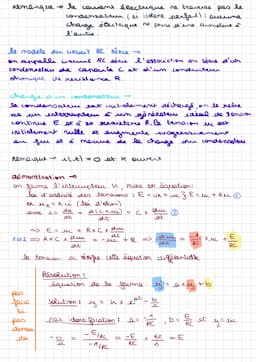 remarque → le courant électrique ne traverse pas le
condensateur (si idéal parfait) : aucune
charge électrique ne passe d'une armature à
l'autre
le modèle du circuit RC série →
on appelle circuit RC série l'association en série d'un
condensateur de capacité C et d'un conducteur
ohmique de résistance R.
Charge d'un condensateur →
le condensateur est initialement déchargé, on le relie
à un interrupteur à un générateur idéal de tension
continue E et à sa résistance R. La tension uc est
initialement nulle et augmente progressivement
au fur et à mesure de la charge du condensateur
remarque → i(t) = 0 et K ouvert
démonstration →
on ferme l'interrupteur K, mise en équation :
loi d'additivité des tensions : E = uR + uc
or uR = R×i (loi d'ohm)
avec i = dq/dt = d(C×uc)/dt = C × duc/dt
⇒ E = uc + R×C× duc/dt
⇒ R×C × duc/dt = -uc + E ⇒ duc/dt = -1/RC × uc + E/RC
la tension uc vérifie cette équation différentielle
Résolution :
équation de la forme : y' = ay + b
solution : y = K × e^at - b/a
par identification : a = -1/RC, b = E/RC et y = uc
-b/a = -E/RC / -1/RC = E/RC × RC/1 = E
pas
faire
si
pas
demandé